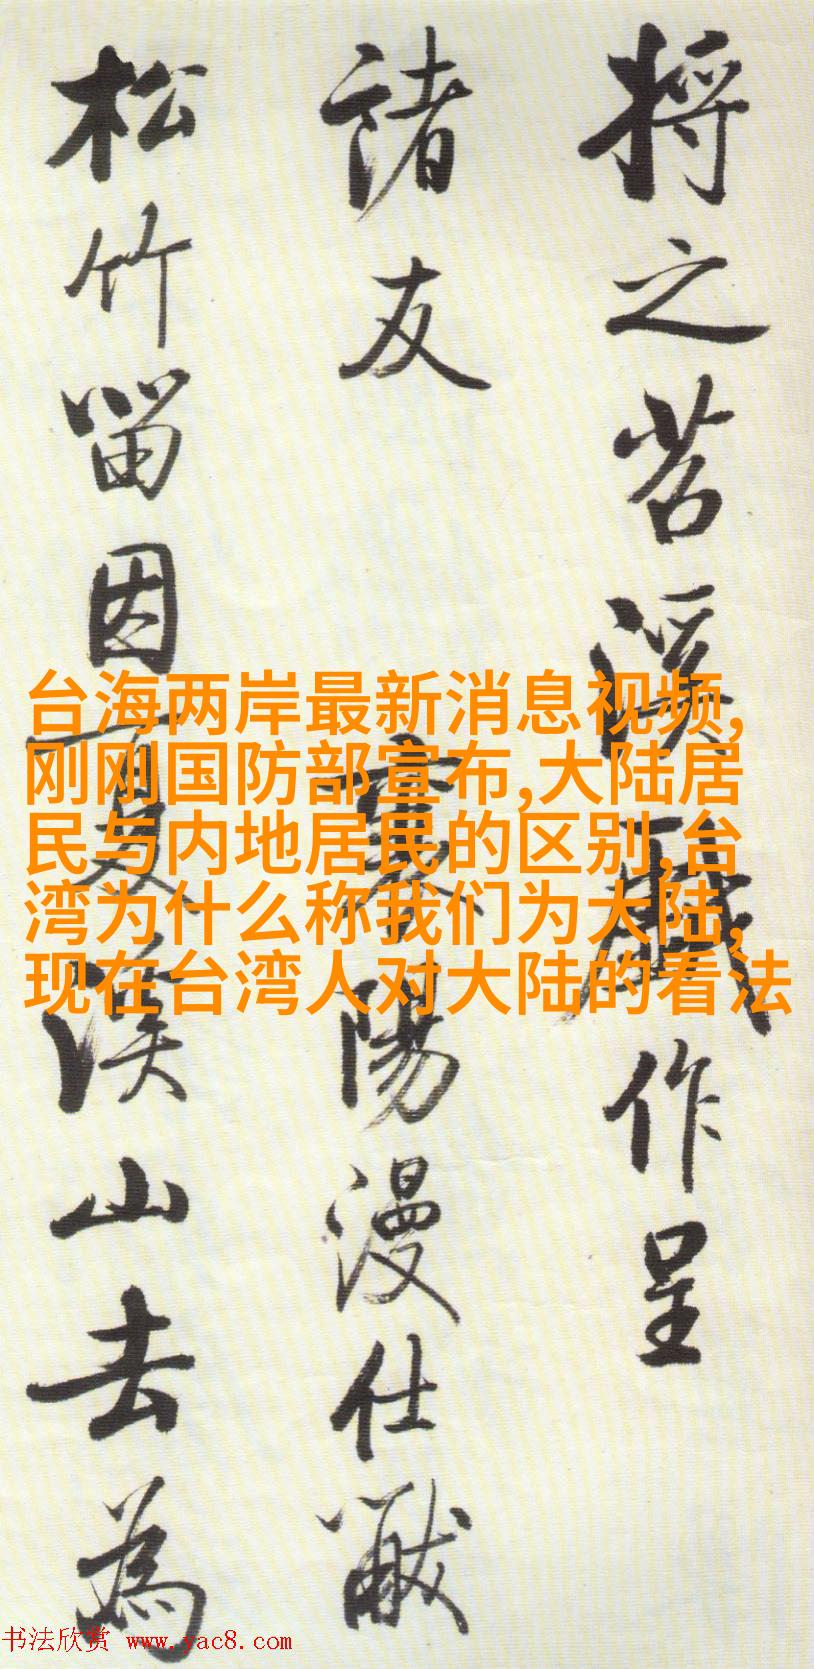 将之苕溪戲作呈
諸友
襄陽漫仕黻
松竹留因夏溪山去為
台海两岸最新消息视频,
刚刚国防部宣布,大陆居
民与内地居民的区别,台
湾为什么称我们为大陆,
现在台湾人对大陆的看法
书法欣赏 www.yac8.com